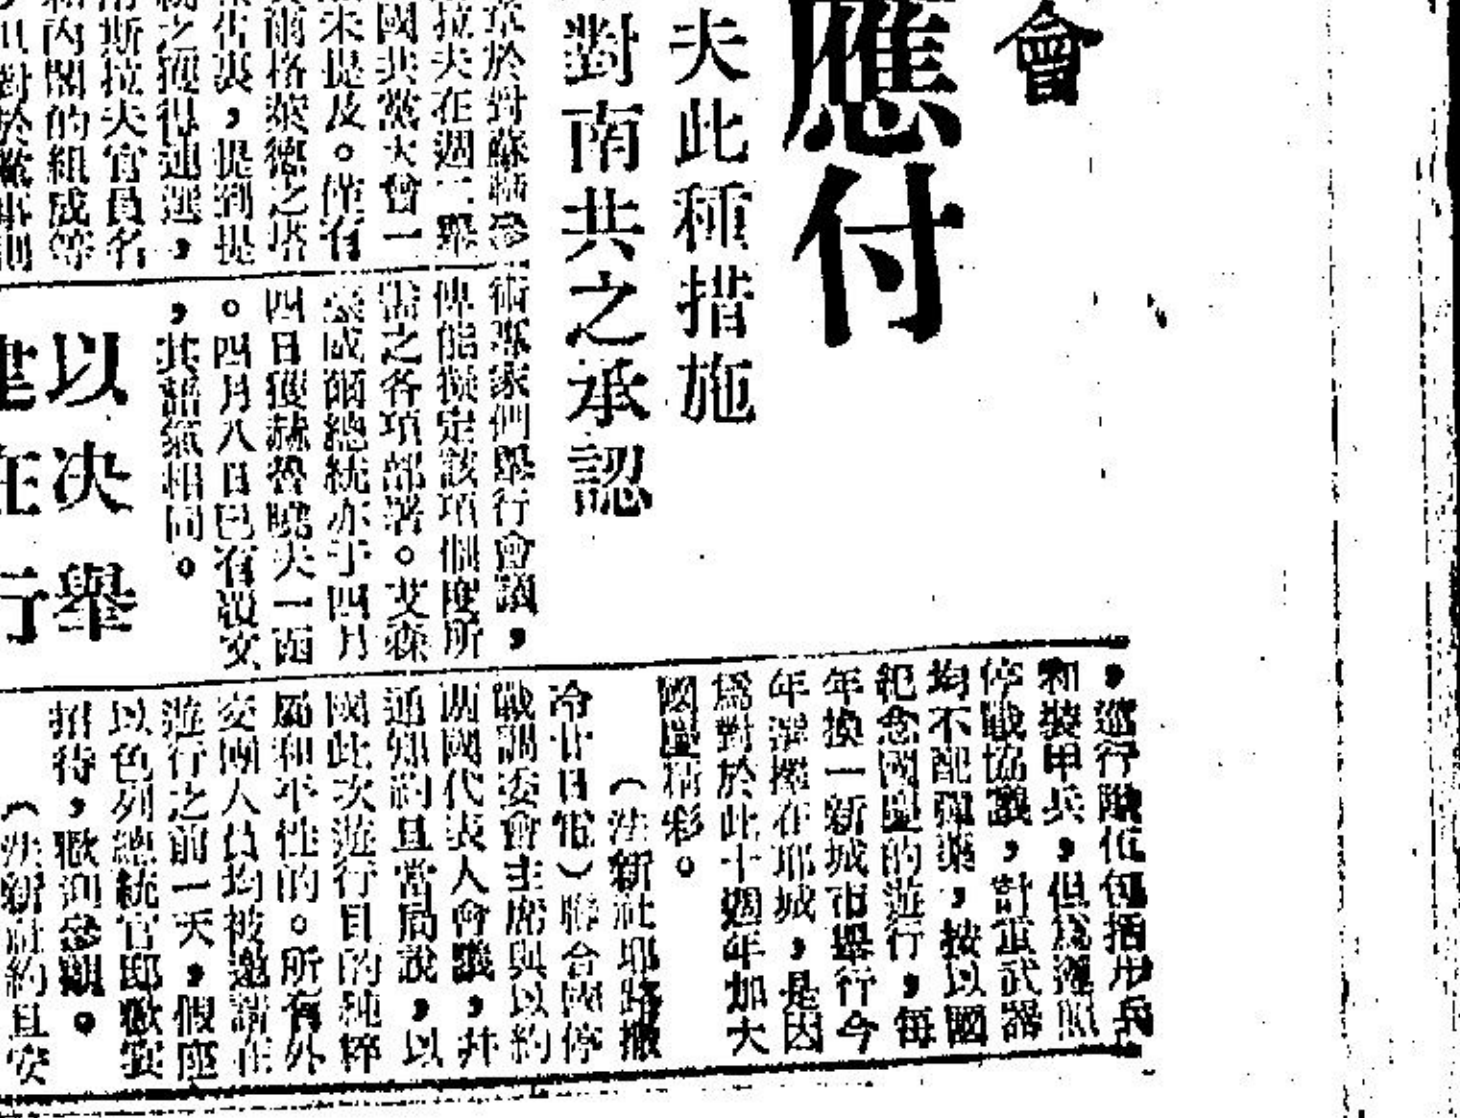 會
應付
夫此種措施
對南共之承認
京於對蘇
拉夫在週二舉
國共黨大會一
未提及。僅有
爾格萊德之塔
佑裏，提到提
之獲得連選，
南斯拉夫官員名
和內閣的組成等
但對於黨
術專家們舉行會議，
俾能擬定該項個度所
需之各項部署。艾森
豪威爾總統亦于四月
四日獲赫魯曉夫一函
。四月八日已有覆文
，其語氣相同。
以決舉
建在行
，遊行隊伍包括步兵
和裝甲兵，但為遵照
停戰協議，計重武器
均不配彈藥，按以國
紀念國慶的遊行，每
年換一新城市舉行今
年選擇在耶城，是因
爲對於此十週年加大
國慶精彩。
（法新社耶路撒
冷廿日電）聯合國停
戰調委會主席與以約
兩國代表人會議，并
通知約旦當局說，以
國此次遊行目的純粹
屬和平性的。所有外
交團人員均被邀請在
遊行之前一天，假座
以色列總統官邸歡宴
招待，歡迎參觀。
（法新社約旦安